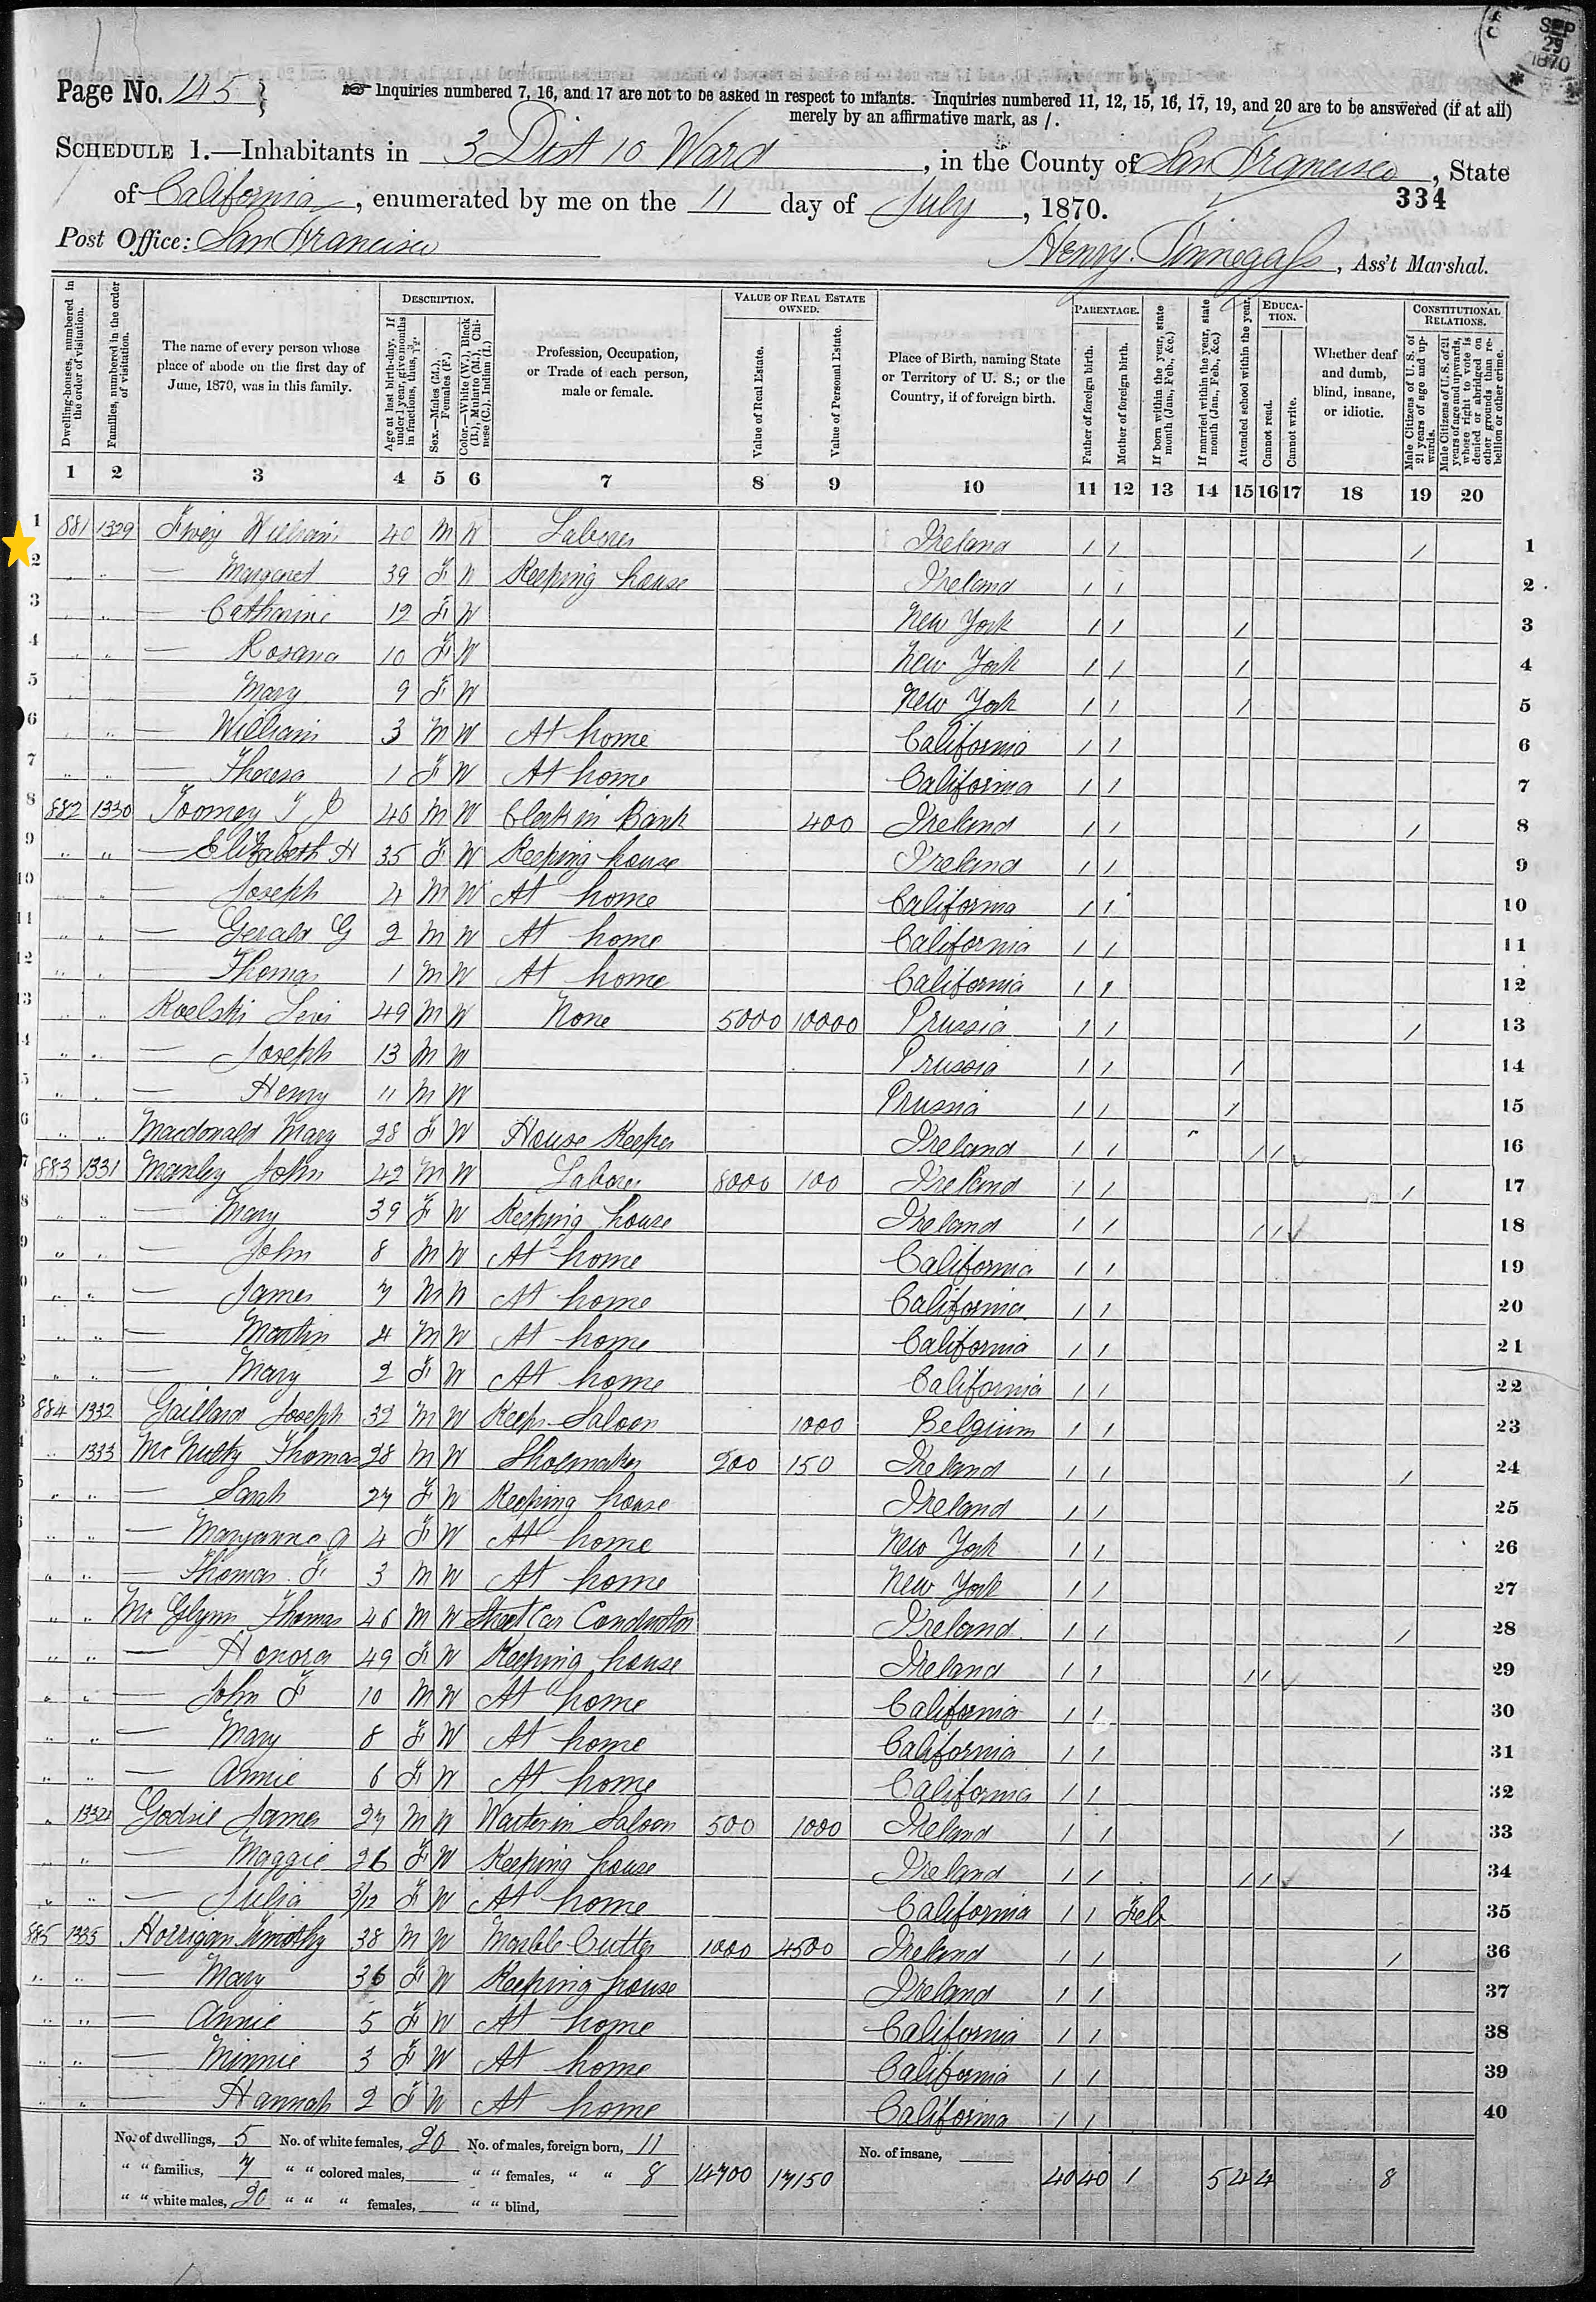 SEP
29
1870
Page No. 145
Inquiries numbered 7, 16, and 17 are not to be asked in respect to infants. Inquiries numbered 11, 12, 15, 16, 17, 19, and 20 are to be answered (if at all)
merely by an affirmative mark, as /.
SCHEDULE 1.—Inhabitants in 3 Dist 10 Ward, in the County of San Francisco, State
of California, enumerated by me on the 11 day of July, 1870.
334
Post Office: San Francisco
Henry Finnegass, Ass't Marshal.
Dwelling-houses, numbered in the order of visitation.
Families, numbered in the order of visitation.
The name of every person whose place of abode on the first day of June, 1870, was in this family.
DESCRIPTION.
Age at last birth-day. If under 1 year, give months in fractions, thus, 3/12.
Sex.—Males (M.), Females (F.)
Color.—White (W.), Black (B.), Mulatto (M.), Chinese (C.), Indian (I.)
Profession, Occupation, or Trade of each person, male or female.
VALUE OF REAL ESTATE OWNED.
Value of Real Estate.
Value of Personal Estate.
Place of Birth, naming State or Territory of U. S.; or the Country, if of foreign birth.
PARENTAGE.
Father of foreign birth.
Mother of foreign birth.
If born within the year, state month (Jan., Feb., &c.)
If married within the year, state month (Jan., Feb., &c.)
Attended school within the year.
EDUCATION.
Cannot read.
Cannot write.
Whether deaf and dumb, blind, insane, or idiotic.
CONSTITUTIONAL RELATIONS.
Male Citizens of U. S. of 21 years of age and upwards.
Male Citizens of U. S. of 21 years of age and upwards, whose right to vote is denied or abridged on other grounds than rebellion or other crime.
1 2 3 4 5 6 7 8 9 10 11 12 13 14 15 16 17 18 19 20
1 881 1329 William 40 M W Laborer Ireland / / / 1
2 " " — Margaret 39 F W Keeping house Ireland / / 2
3 " " — Catharine 12 F W New York / / / 3
4 " " — Rosana 10 F W New York / / / 4
5 " " — Mary 9 F W New York / / / 5
6 " " — William 3 M W At home California / / 6
7 " " — Theresa 1 F W At home California / / 7
8 882 1330 Toomey T J 46 M W Clerk in Bank 400 Ireland / / / 8
9 " " — Elizabeth H 35 F W Keeping house Ireland / / 9
10 " " — Joseph 4 M W At home California / / 10
11 " " — Gerald G 2 M W At home California / / 11
12 " " — Thomas 1 M W At home California / / 12
13 " " Koelski Levi 49 M W None 5000 10000 Prussia / / / 13
" " — Joseph 13 M W Prussia / / / 14
" " — Henry 11 M W Prussia / / / 15
" " Macdonald Mary 28 F W House Keeper Ireland / / / / 16
883 1331 Manley John 42 M W Laborer 8000 100 Ireland / / / 17
" " — Mary 39 F W Keeping house Ireland / / / / 18
" " — John 8 M W At home California / / 19
" " — James 7 M W At home California / / 20
" " — Martin 4 M W At home California / / 21
" " — Mary 2 F W At home California / / 22
884 1332 Gaillard Joseph 32 M W Keeps Saloon 1000 Belgium / / 23
" 1333 McNulty Thomas 28 M W Shoemaker 200 150 Ireland / / / 24
" " — Sarah 27 F W Keeping house Ireland / / 25
" " — Maryanne A 4 F W At home New York / / 26
" " — Thomas F 3 M W At home New York / / 27
" " McGlynn Thomas 46 M W Street Car Conductor Ireland / / / 28
" " — Honora 49 F W Keeping house Ireland / / / / 29
" " — John F 10 M W At home California / / 30
" " — Mary 8 F W At home California / / 31
" " — Annie 6 F W At home California / / 32
" 1334 Godsil James 27 M W Waiter in Saloon 500 1000 Ireland / / / 33
" " — Maggie 26 F W Keeping house Ireland / / / / 34
" " — Julia 3/12 F W At home California / / Feb 35
885 1335 Horrigan Timothy 38 M W Marble Cutter 1000 4500 Ireland / / / 36
" " — Mary 36 F W Keeping house Ireland / / 37
" " — Annie 5 F W At home California / / 38
" " — Minnie 3 F W At home California / / 39
" " — Hannah 2 F W At home California / / 40
No. of dwellings, 5 No. of white females, 20 No. of males, foreign born, 11 No. of insane,
" " families, 7 " " colored males, " " females, " " 8 14700 17150 40 40 1 5 4 4 8
" " white males, 20 " " " females, " " blind,